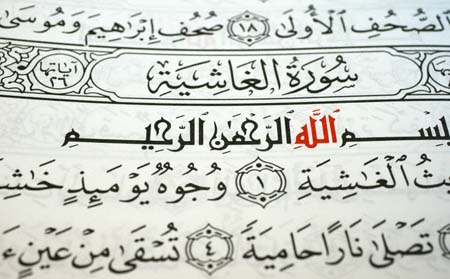 ٱلصُّحُفِ ٱلْأُولَىٰ ١٨ صُحُفِ إِبْرَٰهِيمَ وَمُوسَىٰ
سُورَةُ الغَاشِيَةِ آياتها ٢٦
بِسْمِ ٱللَّهِ ٱلرَّحْمَٰنِ ٱلرَّحِيمِ
يثُ ٱلْغَٰشِيَةِ ١ وُجُوهٌ يَوْمَئِذٍ خَٰشِ
تَصْلَىٰ نَارًا حَامِيَةً ٤ تُسْقَىٰ مِنْ عَيْنٍ ءَ